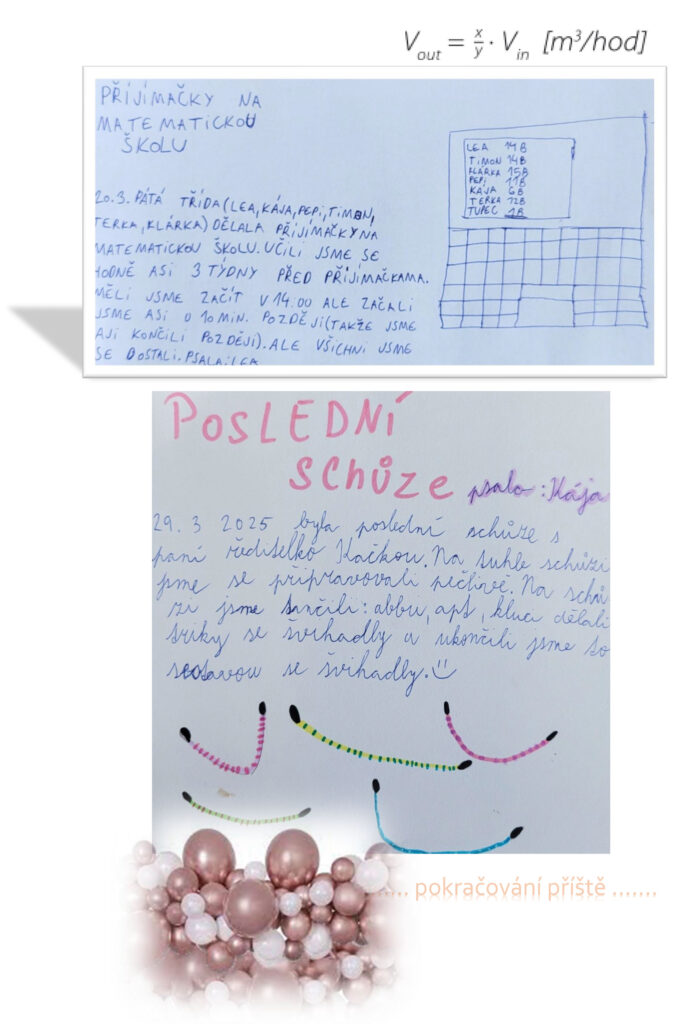 V_out = x/y · V_in [m³/hod]
PŘÍJÍMAČKY NA
MATEMATICKOU
ŠKOLU
20.3. PÁTÁ TŘÍDA (LEA, KÁJA, PEPI, TIMON,
TERKA, KLÁRKA) DĚLALA PŘÍJÍMAČKY NA
MATEMATICKOU ŠKOLU. UČILI JSME SE
HODNĚ ASI 3 TÝDNY PŘED PŘÍJÍMAČKAMA.
MĚLI JSME ZAČÍT V 14.00 ALE ZAČALI
JSME ASI O 10 MIN. POZDĚJI (TAKŽE JSME
AJI KONČILI POZDĚJI). ALE VŠICHNI JSME
SE DOSTALI. PSALA: LEA
LEA 14B
TIMON 14B
KLÁRKA 15B
PEPI 11B
KÁJA 6B
TERKA 12B
TUPEC 1B
POSLEDNÍ
SCHŮZE psala: Kája
29. 3 2025 byla poslední schůze s
paní ředitelko Kačkou. Na tuhle schůzi
jsme se připravovali pečlivě. Na schů
zi jsme tančili: abbu, apt, kluci dělali
triky se švihadly a ukončili jsme to
sestavou se švihadly.
....... pokračování příště .......